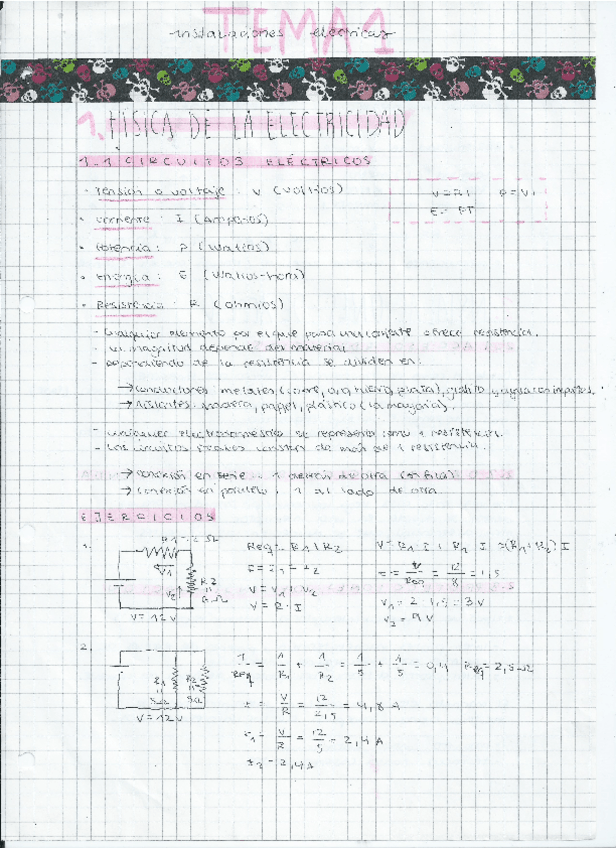 TEMA 1
instalaciones eléctricas
1. FÍSICA DE LA ELECTRICIDAD
1.1 CIRCUITOS ELÉCTRICOS
· Tensión o voltaje: V (voltios)
V=R·I P=V·I
E=P·T
· Corriente: I (Amperios)
· Potencia: P (Watios)
· Energía: E (Watios-hora)
· Resistencia: R (ohmios)
- Cualquier elemento por el que pasa una corriente ofrece resistencia.
- La magnitud depende del material
- Dependiendo de la resistencia se dividen en:
→ Conductores: metales (cobre, aluminio, plata), grafito y agua con impurezas.
→ Aislantes: madera, papel, plástico (la mayoría).
- Cualquier electrodoméstico se representa como 1 resistencia.
- Los circuitos reales constan de más de 1 resistencia.
→ Conexión en serie: 1 detrás de otra (en fila)
→ Conexión en paralelo: 1 al lado de otra
EJERCICIOS
1.
R1 = 2 Ω
V1
V2
R2
6 Ω
V = 12 V
Req = R1 + R2
I = I1 = I2
V = V1 + V2
V = R · I
V = R1 · I + R2 · I = (R1 + R2) · I
I = V/Req = 12/8 = 1,5
V1 = 2 · 1,5 = 3 V
V2 = 9 V
2.
R1 = 5 Ω
R2 = 5 Ω
V = 12 V
1/Req = 1/R1 + 1/R2 = 1/5 + 1/5 = 0,4 Req = 2,5 Ω
I = V/R = 12/2,5 = 4,8 A
I1 = V/R = 12/5 = 2,4 A
I2 = 2,4 A